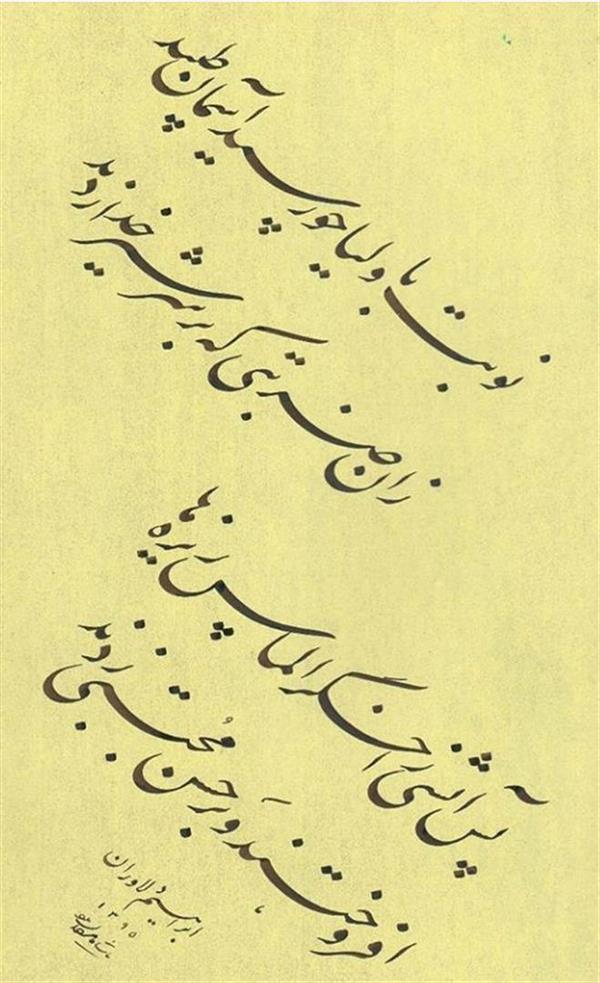 نوبت باولیا چو رسید آسمان طپید
زان ضربتی که بر سر شیر خدا زدند
پس آتشی ز اخگر الماس ریزه‌ها
افروختند و بر حسن مُجتبی زدند
ابراهیم دلاوران
۱۳۹۵